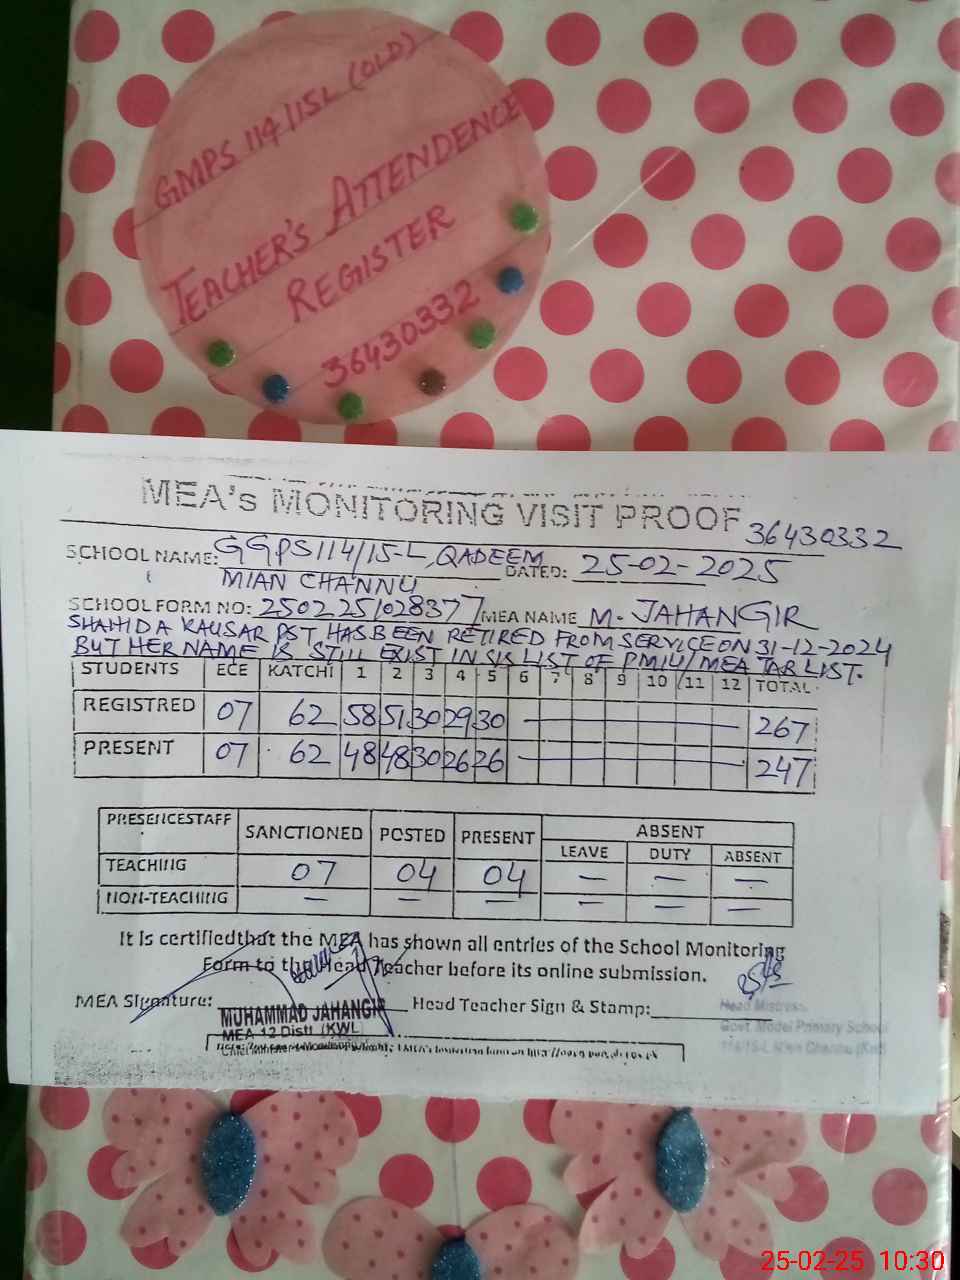 GMPS 114/15L (OLD)
TEACHER'S ATTENDENCE
REGISTER
36430332
MEA's MONITORING VISIT PROOF 36430332
SCHOOL NAME: GGPS 114/15-L, QADEEM DATED: 25-02-2025
MIAN CHANNU
SCHOOL FORM NO: 2502251028377 MEA NAME M. JAHANGIR
SHAHIDA KAUSAR PST HAS BEEN RETIRED FROM SERVICE ON 31-12-2024
BUT HER NAME IS STILL EXIST IN SIS LIST OF PMIU/MEA TAB LIST.
STUDENTS ECE KATCHI 1 2 3 4 5 6 7 8 9 10 11 12 TOTAL
REGISTRED 07 62 58 51 30 29 30 — 267
PRESENT 07 62 48 48 30 26 26 — 247
PRESENCESTAFF SANCTIONED POSTED PRESENT ABSENT
LEAVE DUTY ABSENT
TEACHING 07 04 04 — — —
NON-TEACHING — — — — — —
It is certifiedthat the MEA has shown all entries of the School Monitoring
Form to the Head Teacher before its online submission.
MEA Signature: Head Teacher Sign & Stamp:
MUHAMMAD JAHANGIR
MEA 12 Distt. (KWL)
Head Mistress
Govt. Model Primary School
114/15-L Mian Channu (Kwl)
25-02-25 10:30